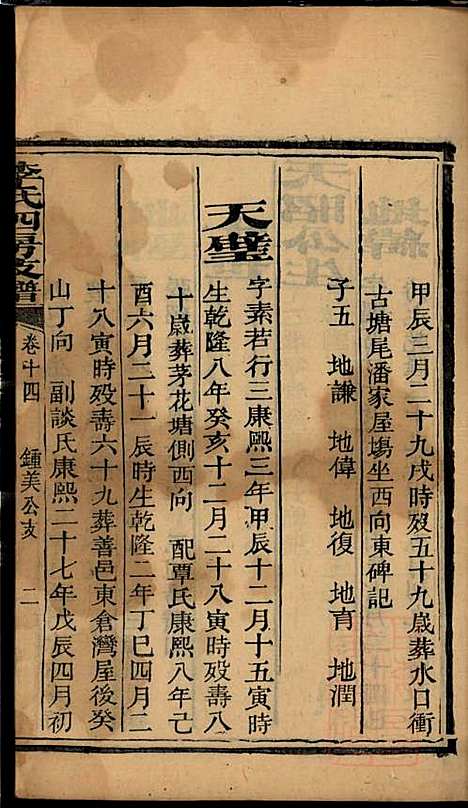 甲辰三月二十九戌時歿五十九歲葬水口衝
古塘尾潘家屋塲坐西向東碑記
子五　地謙　地偉　地復　地育　地潤
天璧
字素若行三康熙三年甲辰十二月十五寅時
生乾隆八年癸亥十二月二十八寅時歿壽八
十歲葬茅花塘側西向　配覃氏康熙八年己
酉六月二十一辰時生乾隆二年丁巳四月二
十八寅時歿壽六十九葬善邑東倉灣屋後癸
山丁向　副談氏康熙二十七年戊辰四月初
李氏四房支譜
卷十四　鍾美公支　二